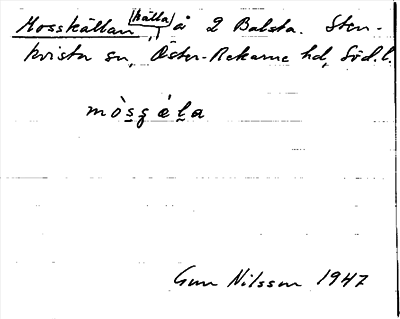 Mosskällan, (källa) å 2 Balsta. Sten-
kvista sn, Öster-Rekarne hd, Söd.l.
mòsʂ ɕ́eḷa
Gun Nilsson 1947